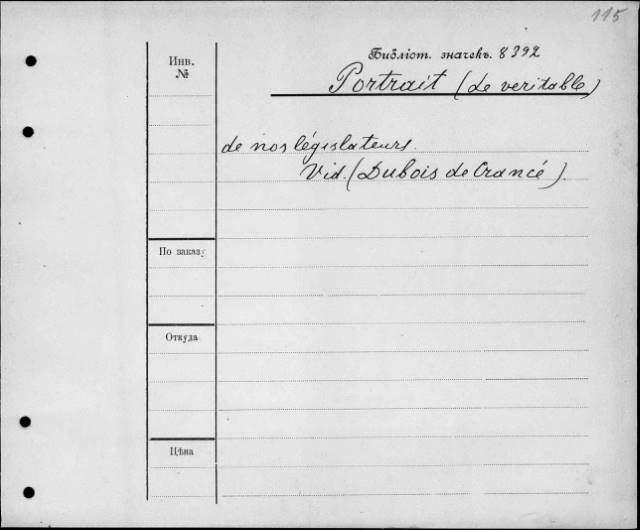 115
Инв.
№
Библіот. значекъ. 8392
Portrait (Le veritable)
de nos législateurs.
Vid. (Dubois de Crancé).
По заказу
Откуда
Цѣна